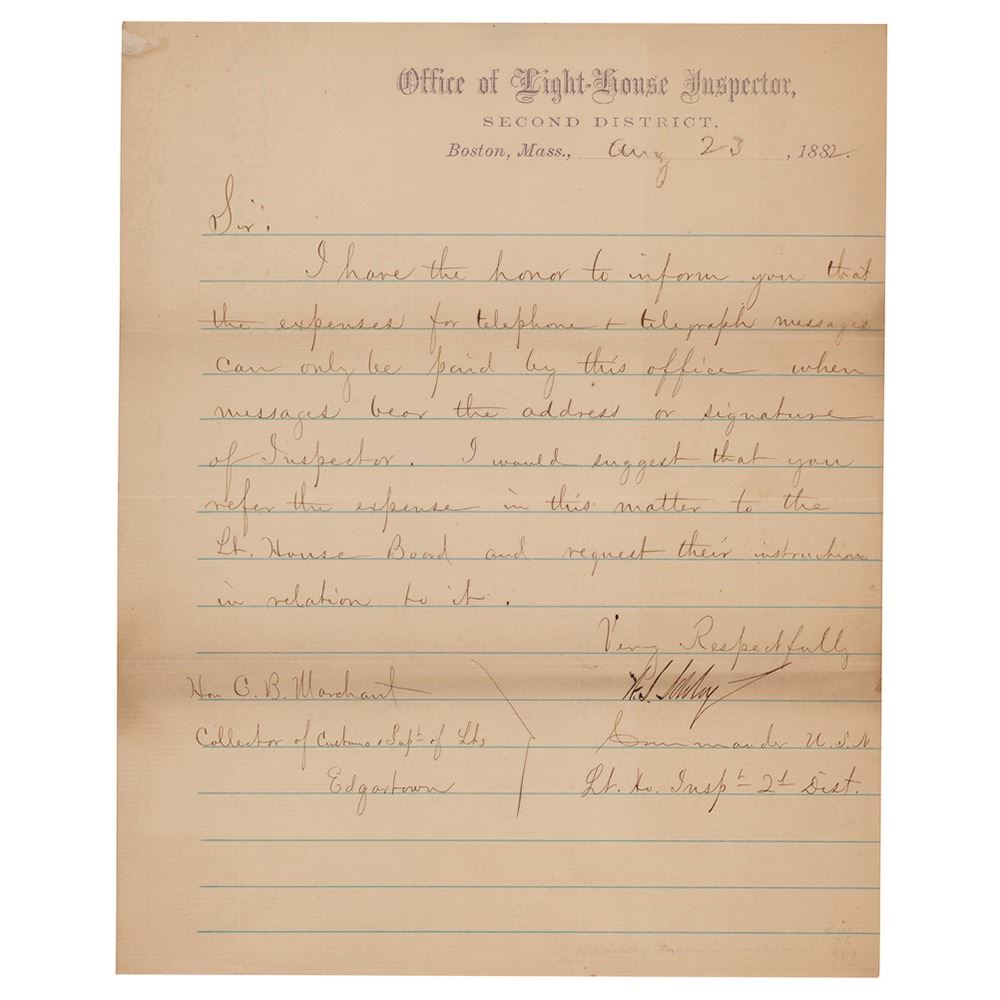 Office of Light-House Inspector,
SECOND DISTRICT,
Boston, Mass., Aug 23, 1882.
Sir:
I have the honor to inform you that
the expenses for telephone & telegraph messages
can only be paid by this office when
messages bear the address or signature
of Inspector. I would suggest that you
refer the expense in this matter to the
Lt. House Board and request their instruction
in relation to it.
Very Respectfully
Hon C. B. Marchant
Collector of Customs & Supt of Lts
Commander U.S.N
Edgartown
Lt. Ho. Inspt 2d Dist.